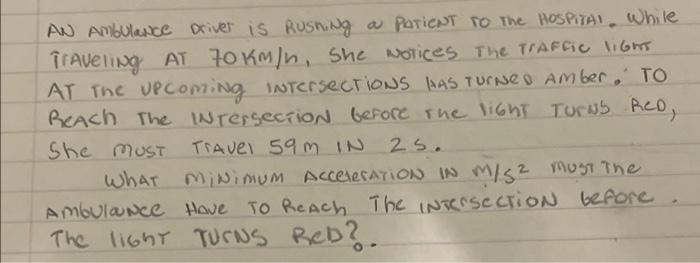 AN Ambulance Driver is Rushing a Patient to the HOSPITAL. While
Traveling AT 70 Km/h, She Notices The Traffic light
AT The upcoming intersections has turned Amber. To
Reach The Intersection before The light Turns Red,
She must Travel 59 m IN 2 s.
What minimum Acceleration IN m/s2 must The
Ambulance Have To Reach The Intersection before.
The light Turns Red?.